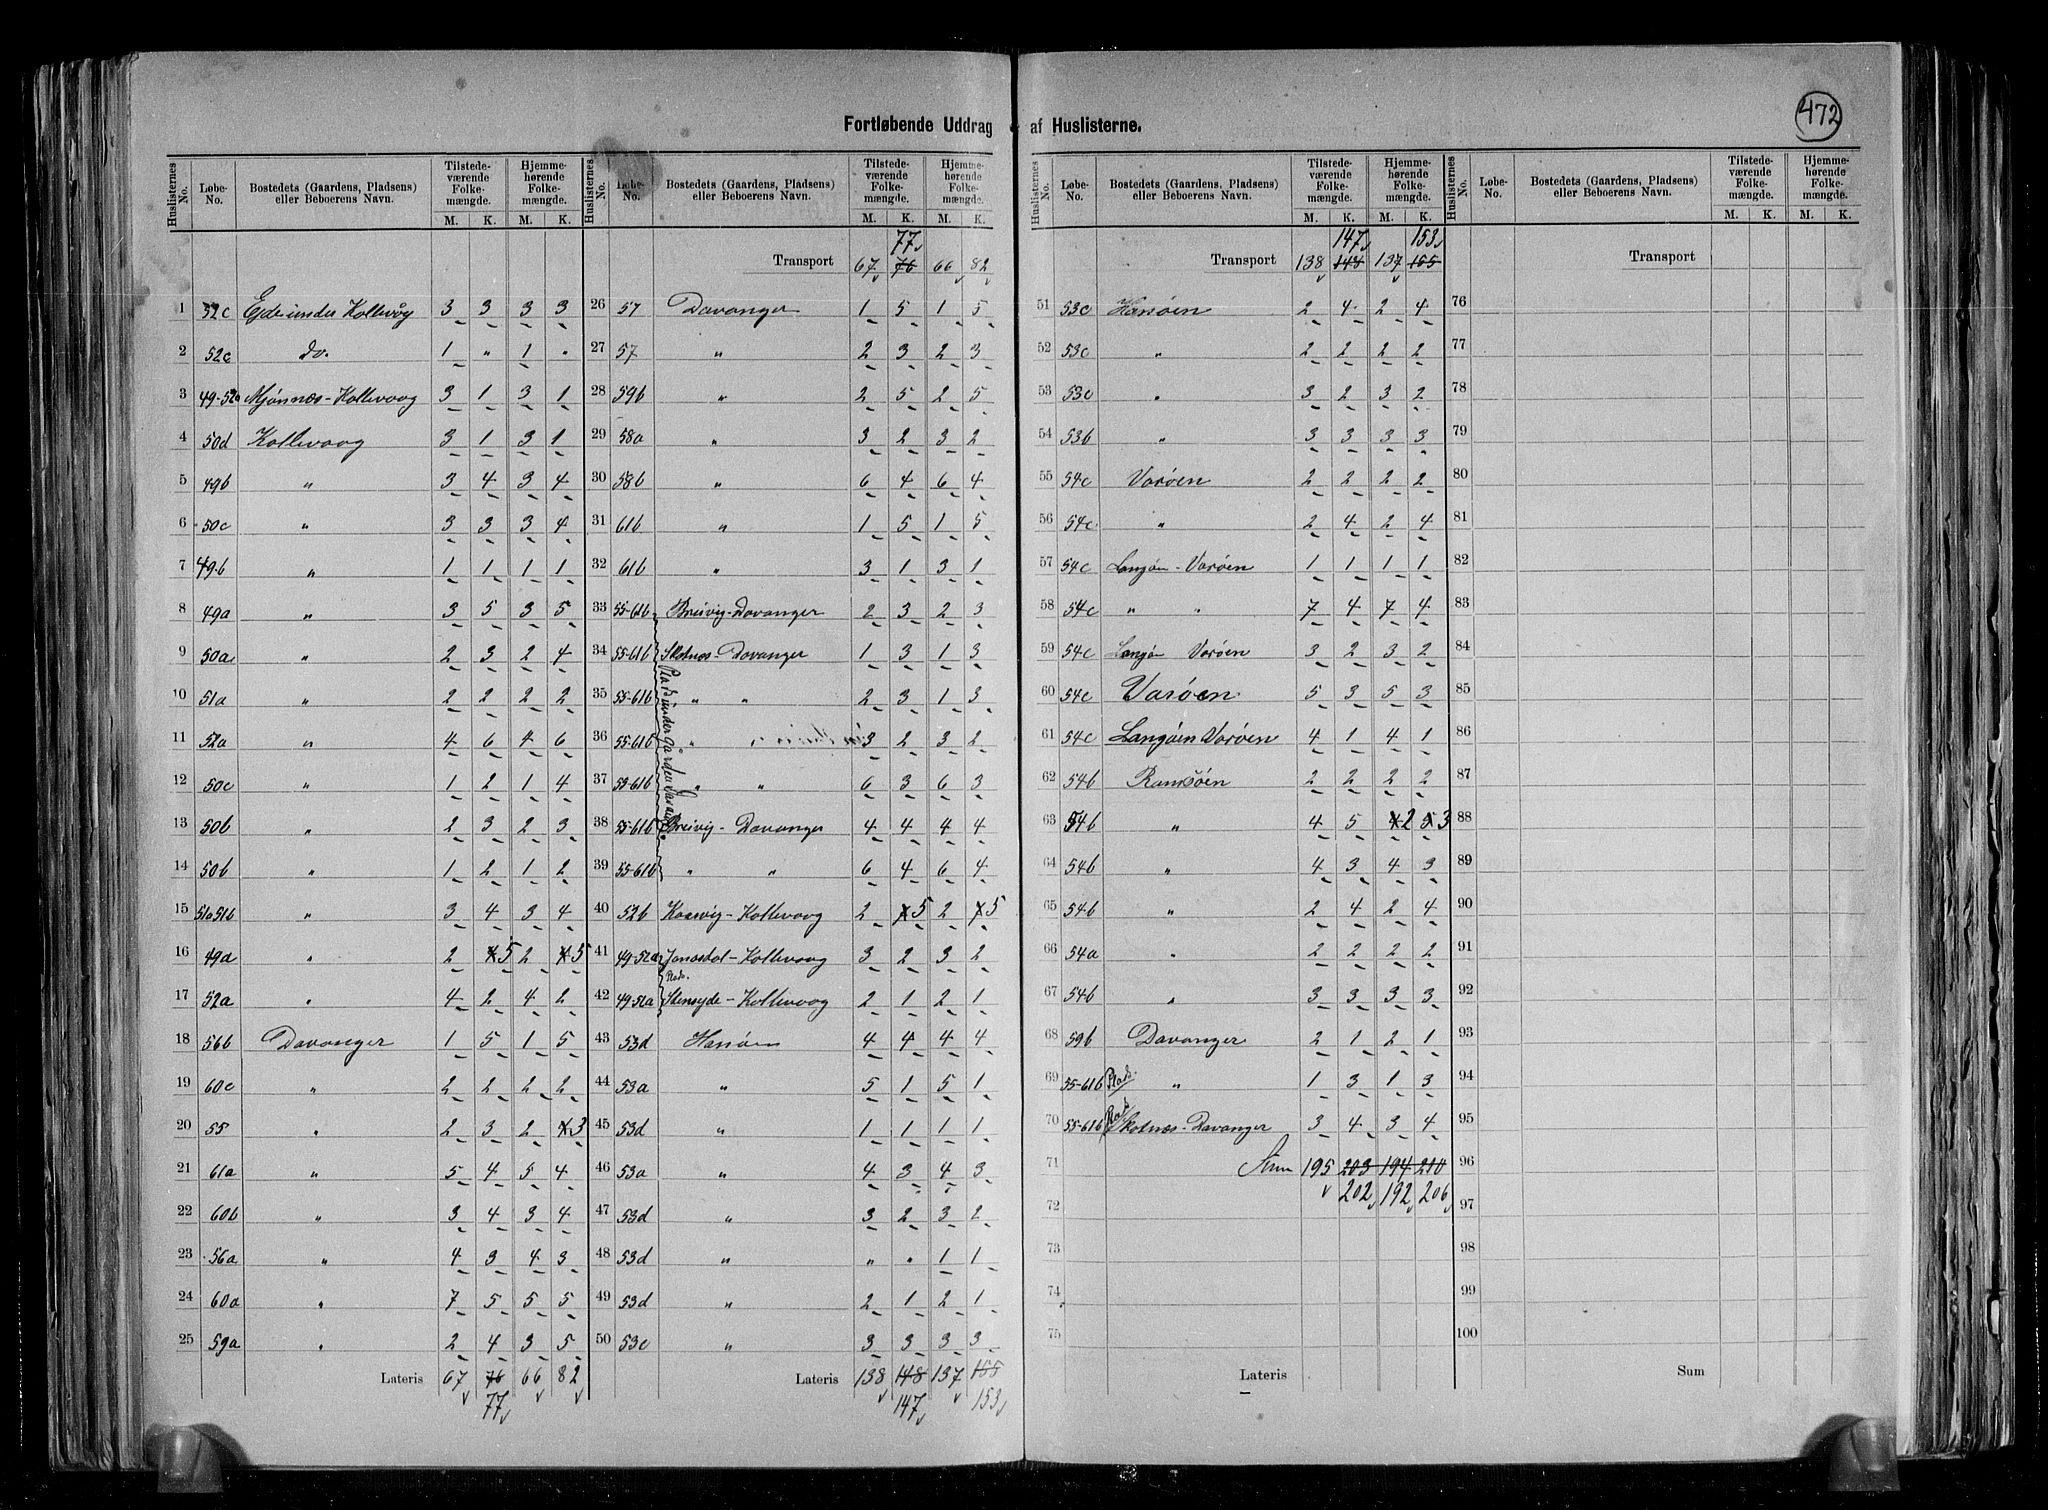 472
Fortløbende Uddrag af Huslisterne.
Huslisternes No. Løbe-No. Bostedets (Gaardens, Pladsens) eller Beboerens Navn. Tilstedeværende Folkemængde. M. K. Hjemmehørende Folkemængde. M. K.
1 52c Eide under Kollevåg 3 3 3 3
2 52c Do. 1 " 1 "
3 49-52a Mjønnæs-Kollevaag 3 1 3 1
4 50d Kollevaag 3 1 3 1
5 49b " 3 4 3 4
6 50c " 3 3 3 4
7 49b " 1 1 1 1
8 49a " 3 5 3 5
9 50a " 2 3 2 4
10 51a " 2 2 2 2
11 52a " 4 6 4 6
12 50c " 1 2 1 4
13 50b " 2 3 2 3
14 50b " 1 2 1 2
15 51a 51b " 3 4 3 4
16 49a " 2 4 5 2 4 5
17 52a " 4 2 4 2
18 56b Davanger 1 5 1 5
19 60c " 2 2 2 2
20 55 " 2 3 2 3
21 61a " 5 4 5 4
22 60b " 3 4 3 4
23 56a " 4 3 4 3
24 60a " 7 5 5 5
25 59a " 2 4 3 5
Lateris 67 76 66 82
77
Huslisternes No. Løbe-No. Bostedets (Gaardens, Pladsens) eller Beboerens Navn. Tilstedeværende Folkemængde. M. K. Hjemmehørende Folkemængde. M. K.
77
Transport 67 76 66 82
26 57 Davanger 1 5 1 5
27 57 " 2 3 2 3
28 59b " 2 5 2 5
29 58a " 3 2 3 2
30 58b " 6 4 6 4
31 61b " 1 5 1 5
32 61b " 3 1 3 1
33 55-61b Breivig-Davanger 2 3 2 3
34 55-61b Skotnæs-Davanger 1 3 1 3
Plads under Gaarden
35 55-61b " " 2 3 1 3
36 55-61b " " 3 2 3 2
37 55-61b " " 6 3 6 3
38 55-61b Breivig-Davanger 4 4 4 4
39 55-61b " " 6 4 6 4
40 52b Kaarvig-Kollevaag 2 5 2 5
41 49-52a Jonasdal-Kollevaag 3 2 3 2
Plads.
42 49-52a Stensyde-Kollevaag 2 1 2 1
43 53d Hanøen 4 4 4 4
44 53a " 5 1 5 1
45 53d " 1 1 1 1
46 53a " 4 3 4 3
47 53d " 3 2 3 2
48 53d " " " 1 1
49 53d " 2 1 2 1
50 53c " 3 3 3 3
Lateris 138 148 137 155
147 153
Huslisternes No. Løbe-No. Bostedets (Gaardens, Pladsens) eller Beboerens Navn. Tilstedeværende Folkemængde. M. K. Hjemmehørende Folkemængde. M. K.
147 153
Transport 138 148 137 155
51 53c Hanøen 2 4 2 4
52 53c " 2 2 2 2
53 53c " 3 2 3 2
54 53b " 3 3 3 3
55 54c Varøen 2 2 2 2
56 54c " 2 4 2 4
57 54c Langøen-Varøen 1 1 1 1
58 54c " " 7 4 7 4
59 54c Langøen Varøen 3 2 3 2
60 54c Varøen 5 3 5 3
61 54c Langøen Varøen 4 1 4 1
62 54b Ramsøen 2 2 2 2
63 54b " 4 5 4 2 5 3
64 54b " 4 3 4 3
65 54b " 2 4 2 4
66 54a " 2 2 2 2
67 54b " 3 3 3 3
68 59b Davanger 2 1 2 1
69 55-61b Plads. " 1 3 1 3
70 55-61b Plads Skotnæs-Davanger 3 4 3 4
71 Sum 195 203 194 210
72 202 192 206
73
74
75
Lateris
Huslisternes No. Løbe-No. Bostedets (Gaardens, Pladsens) eller Beboerens Navn. Tilstedeværende Folkemængde. M. K. Hjemmehørende Folkemængde. M. K.
Transport
76
77
78
79
80
81
82
83
84
85
86
87
88
89
90
91
92
93
94
95
96
97
98
99
100
Sum